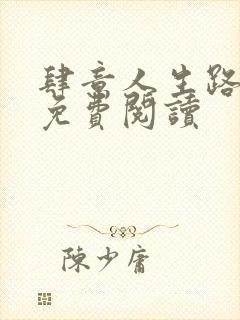 肆意人生路
免費閱讀
陳少庸